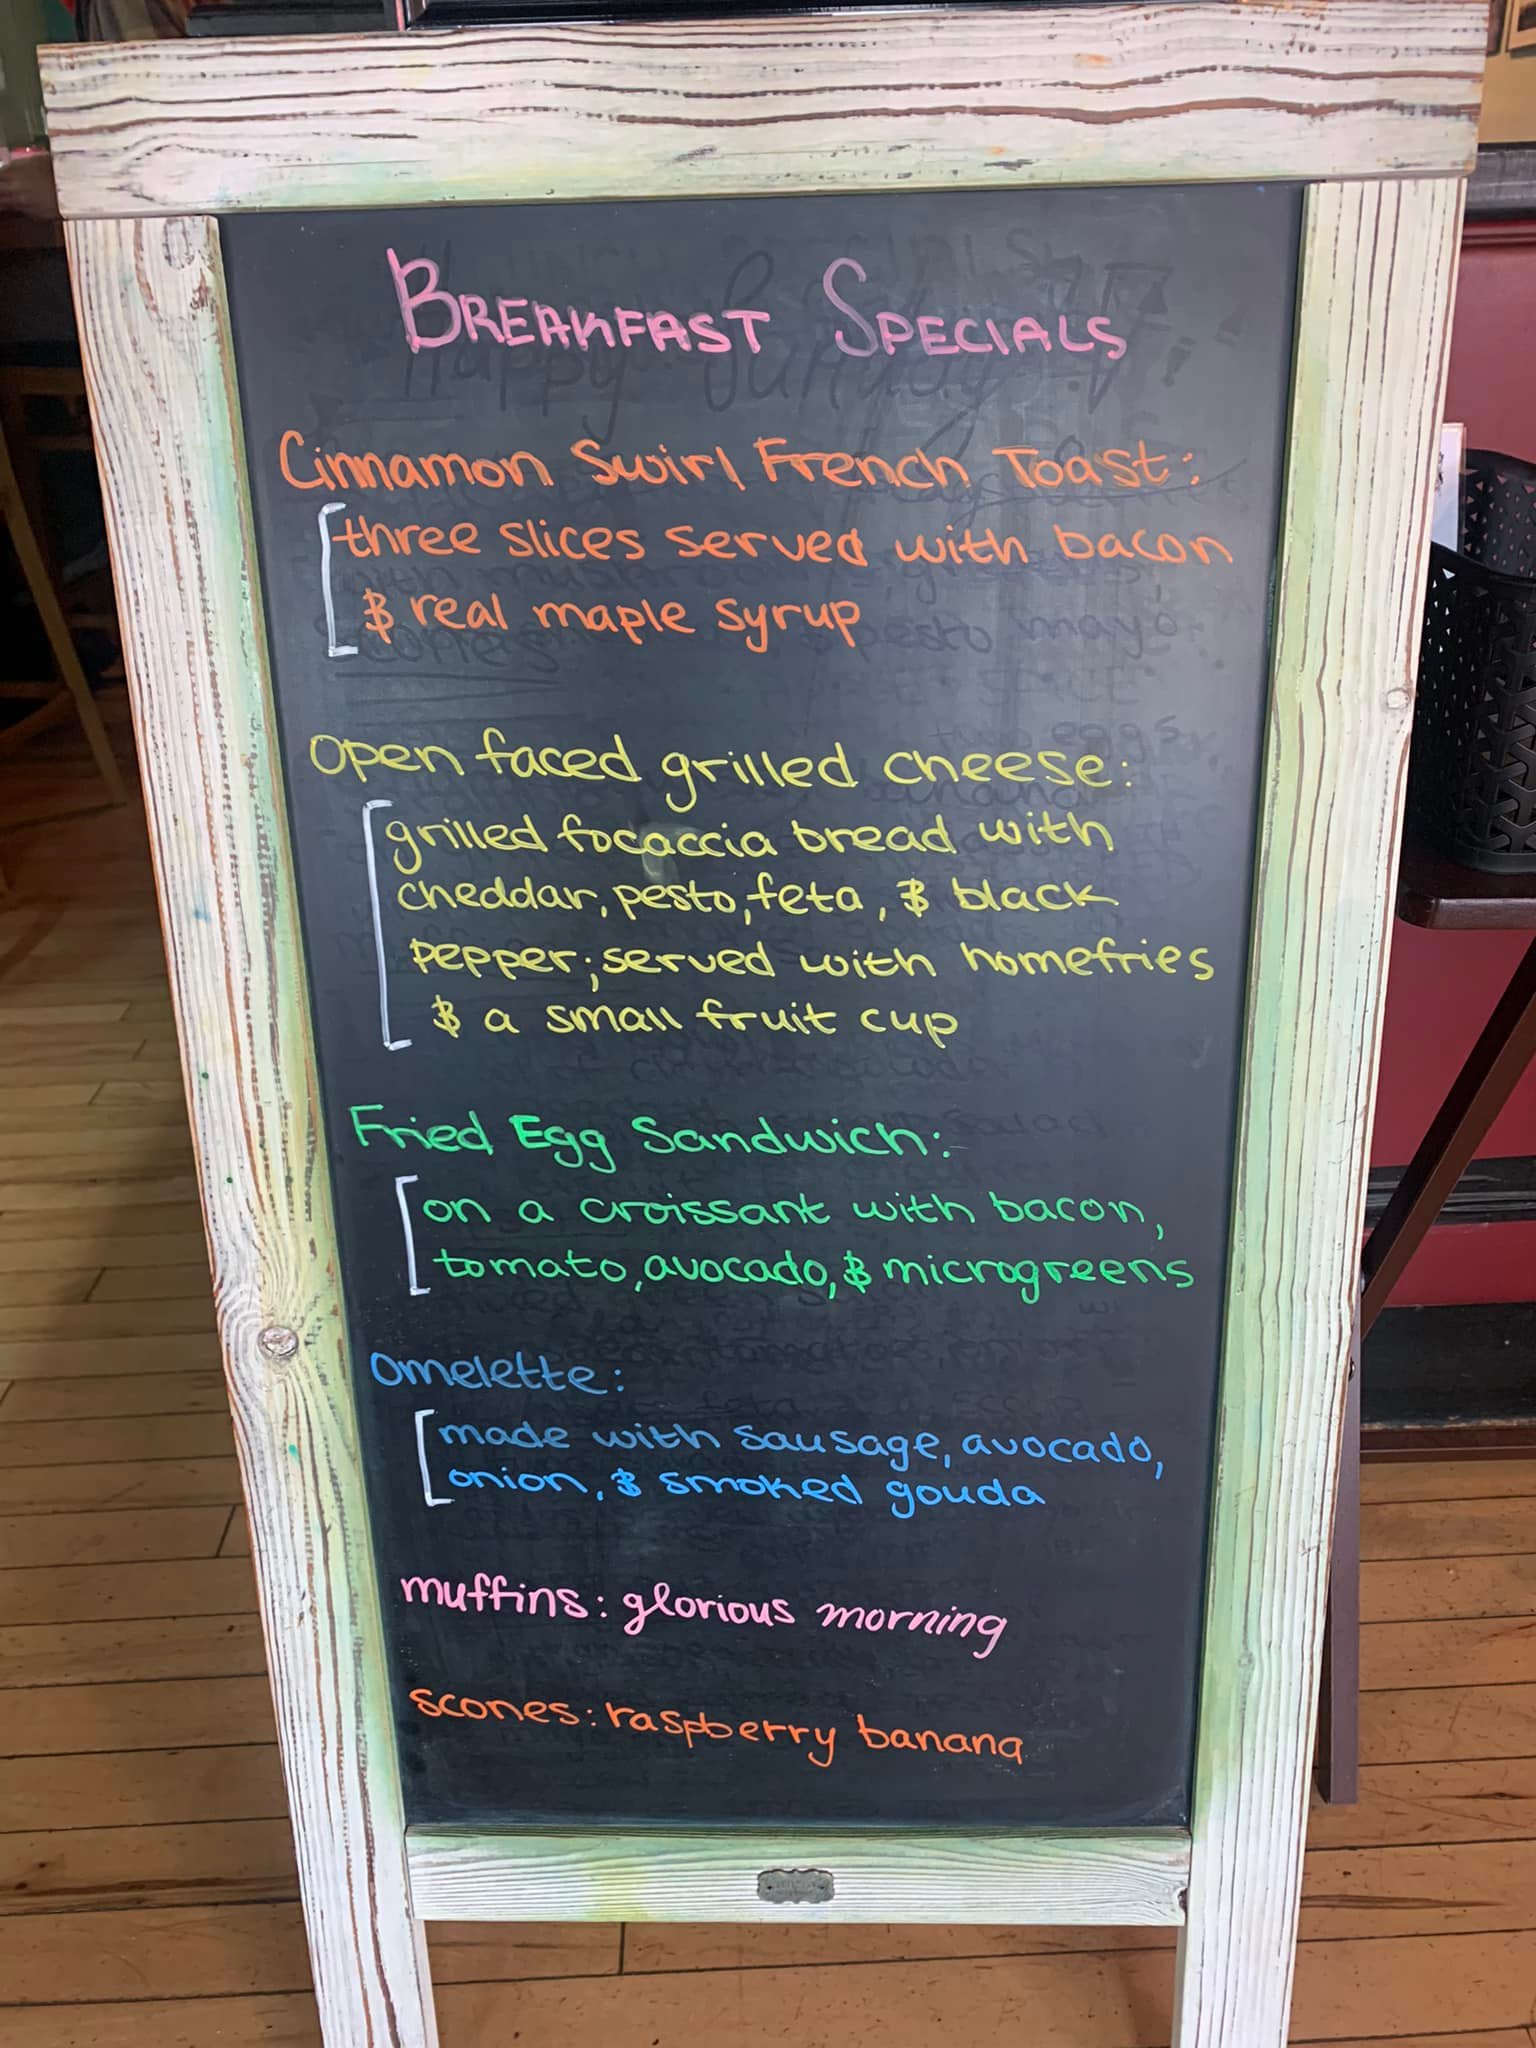 BREAKFAST SPECIALS
Cinnamon Swirl French Toast:
three slices served with bacon
& real maple syrup
Open faced grilled cheese:
grilled focaccia bread with
cheddar, pesto, feta, & black
pepper; served with homefries
& a small fruit cup
Fried Egg Sandwich:
on a croissant with bacon,
tomato, avocado, & microgreens
Omelette:
made with sausage, avocado,
onion, & smoked gouda
muffins: glorious morning
scones: raspberry banana